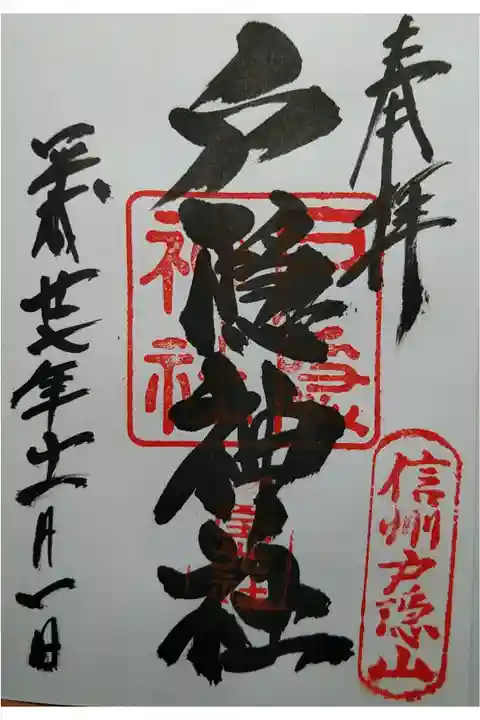 奉拝
信州戸隠山
戸隠神社
戸隠
神社
平成廿七年十一月一日